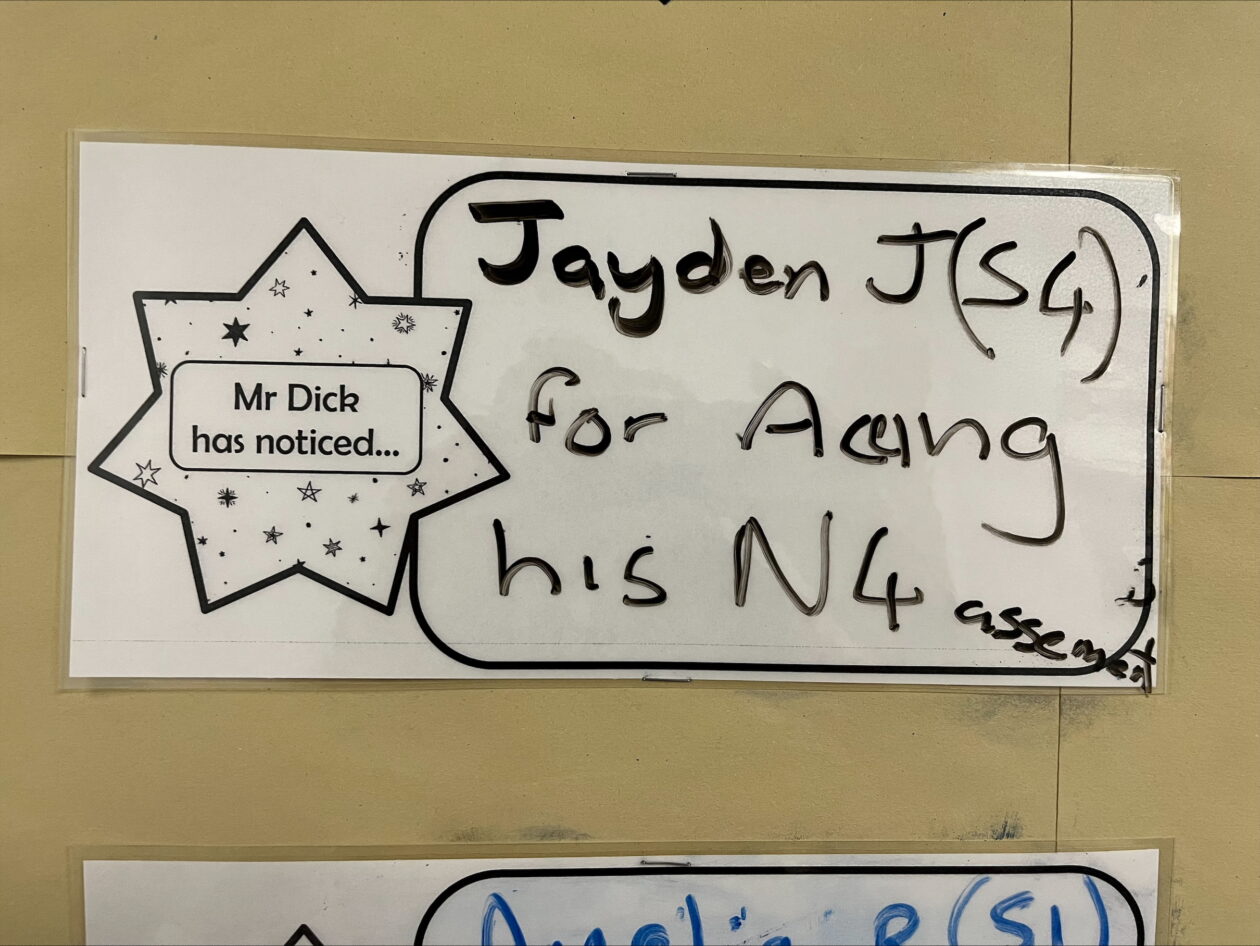 Mr Dick
has noticed...
Jayden J (S4)
for Acing
his N4 assement
(S1)